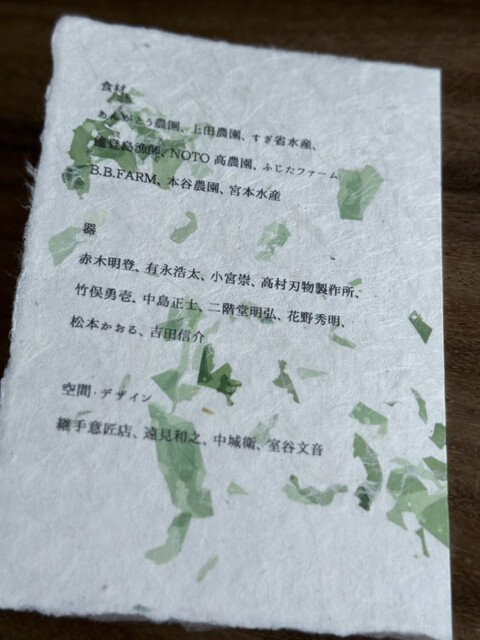 食材
あんがとう農園、上田農園、すぎ省水産、
能登島漁師、NOTO 高農園、ふじたファーム
B.B.FARM、本谷農園、宮本水産
器
赤木明登、有永浩太、小宮崇、高村刃物製作所、
竹俣勇壱、中島正士、二階堂明弘、花野秀明、
松本かおる、吉田信介
空間·デザイン
継手意匠店、遠見和之、中城衛、室谷文音